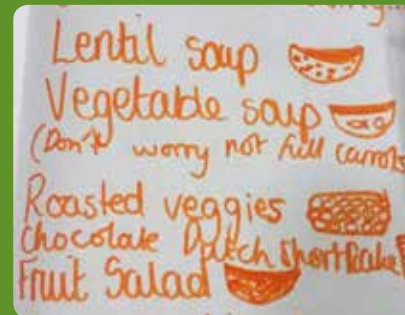 Lentil soup
Vegetable soup
(Don't worry not full carrots
Roasted veggies
Chocolate Dutch Shortcake
Fruit Salad